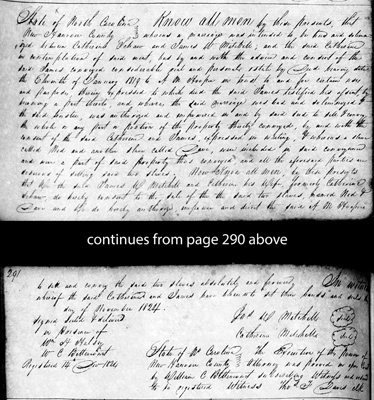 State of North Carolina Know all men by these presents, that
New Hanover County whereas a marriage was intended to be had and solem-
nized between Catherine and James W Mitchell; and the said Catherine
in contemplation of said event, has by and with the advice and consent of the
said James conveyed considerable real and personal estate by Deed bearing date
the Eleventh of January 1819 to A M Hooper in trust to and for certain uses
and purposes therein expressed to which deed the said James testified his assent by
becoming a part thereto, and whereas the said marriage was had and solemnized &
the said trustee, was authorized and empowered in and by said deed to sell & convey
the whole or any part or portion of the property thereby conveyed, by and with the
consent of the said Catherine and James expressed in writing & whereas a slave
called Ned and another slave called Dave, were included in said conveyance
and were a part of said property thus conveyed and all the aforesaid parties are
desirous of selling said two slaves. Now Know all men by these presents
that we the said James W Mitchell and Catherine his Wife formerly Catherine
do hereby consent to the sale of the said two slaves, named Ned &
Dave and We do hereby authorize, empower and direct the said A M Hooper
continues from page 290 above
291
to sell and convey the said two slaves absolutely and forever, In witness
whereof the said Catherine and James have hereunto set their hands and seals the
day of November 1824.
signed sealed & delivered
in presence of
Jas W Mitchell
Catherine Mitchell
W C Bettencourt
Registered 14th Decr 1824
State of No Carolina the Execution of the
New Hanover County was proved in open
by William C Bettencourt a subscribing Witness and ordered
to be registered Witness Thos F Davis clk